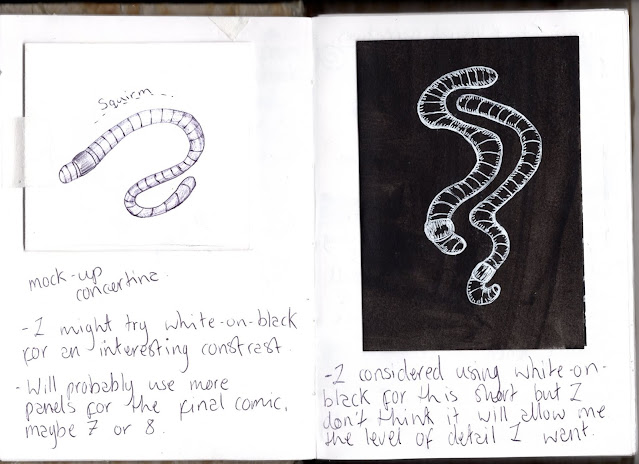 Squirm
mock-up
concertina.
- I might try white-on-black
for an interesting constrast.
- Will probably use more
panels for the final comic,
maybe 7 or 8.
- I considered using white-on-
black for this short but I
don't think it will allow me
the level of detail I want.